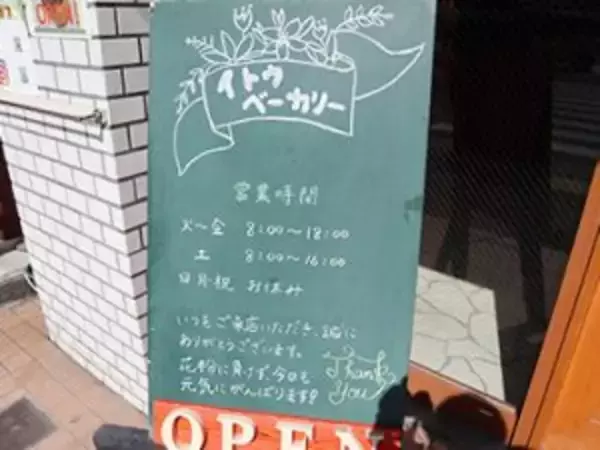 イトウ
ベーカリー
営業時間
火〜金 8:00〜18:00
土 8:00〜16:00
日月祝 お休み
いつもご来店いただき、誠に
ありがとうございます。
花粉に負けず、今日も
元気にがんばります!
Thank
You
OPEN